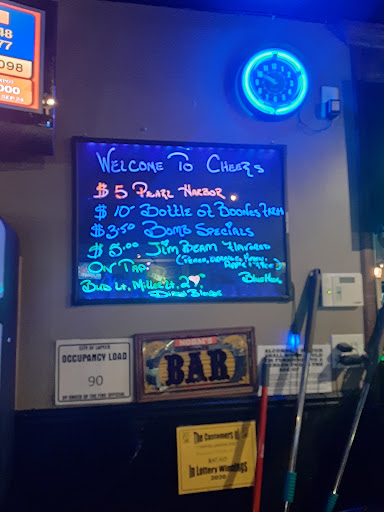 48
77
098
000
WELCOME TO CHEERS
$5 PEARL HARBOR
$10 BOTTLE OF BOONES FARM
$3.50 BOMB SPECIALS
$5.00 JIM BEAM FLAVORED
(PEACH, ORANGE, HONEY,
APPLE + FIRE)
ON TAP:
BUD LT, MILLER LT, 2♥
BLUE MOON
CITY OF LAPEER
OCCUPANCY LOAD
90
BY ORDER OF THE FIRE OFFICIAL
NORM'S
BAR
The Customers of
In Lottery Winnings
2020